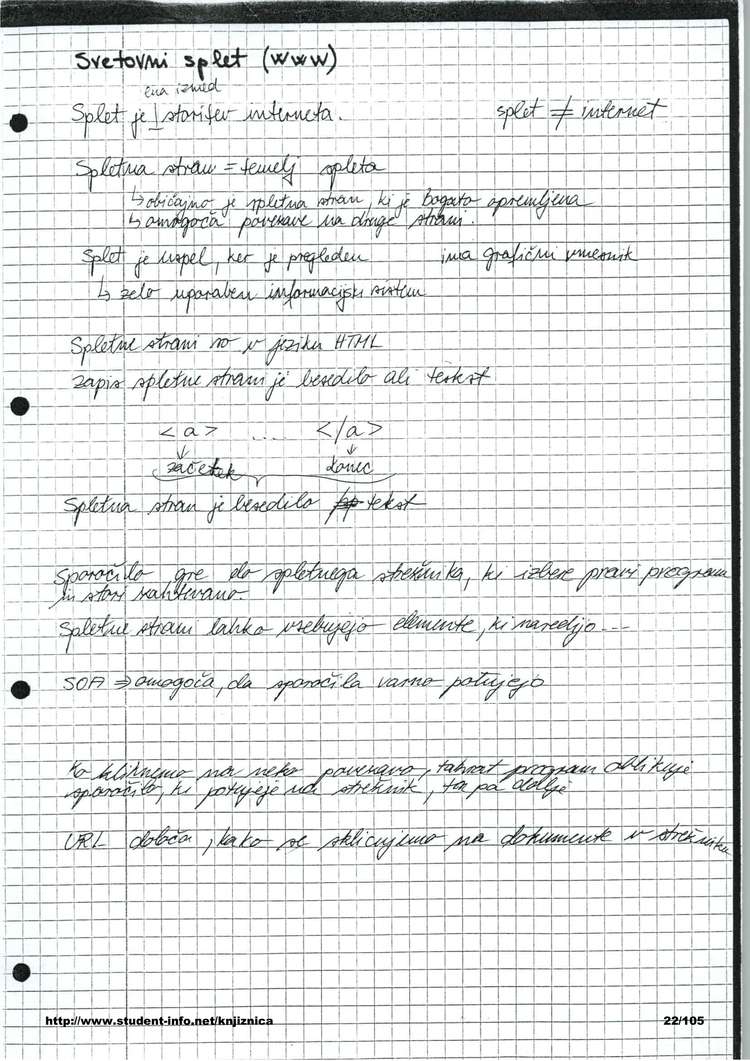 Svetovni splet (www)
ena izmed
Splet je storitev interneta. splet ≠ internet
Spletna stran = temelj spleta
↳ običajno je spletna stran, ki je bogato opremljena
↳ omogoča povezave na druge strani.
Splet je uspel, ker je pregleden ima grafični vmesnik
↳ zelo uporaben informacijski sistem
Spletne strani so v jeziku HTML
Zapis spletne strani je besedilo ali tekst
<a> .... </a>
↓ ↓
začetek konec
Spletna stran je besedilo tekst
Sporočilo gre do spletnega strežnika, ki izbere pravi program
in stori zahtevano.
Spletne strani lahko vsebujejo elemente, ki naredijo ...
SOA ⇒ omogoča, da sporočila varno potujejo
Ko kliknemo na neko povezavo, takrat program oblikuje
sporočilo, ki potuje na strežnik, ta pa dalje
URL določa, kako se sklicujemo na dokumente v strežniku
http://www.student-info.net/knjiznica 22/105